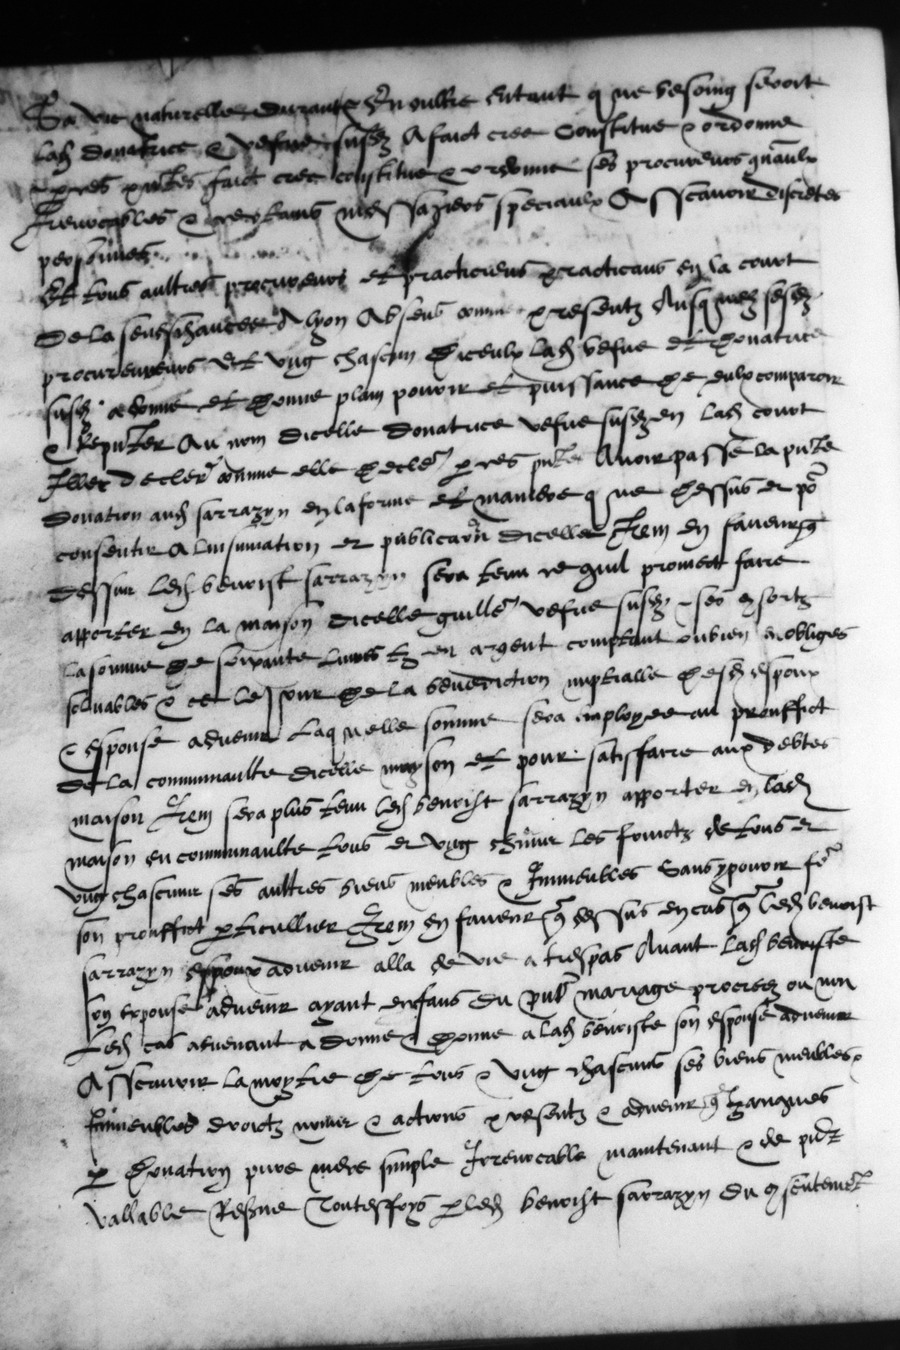 Sa vie naturelle durante Et en oultre entant q ne besoing seroit
lad donatrice & vefve sussd A faict cree constitue & ordonne
& p ces pntes faict cree constitue & ordonne ses procureurs gnaulx
Irrevocables & certains messagiers speciaulx Assavoir discretes
personnes
Et tous aultres procureurs et practiciens practicans en la court
De la seneschaucee A lyon Absens comme presentz Ausquelz sesd
procureurs et ung chascun diceulx lad vefve et donatrice
sussd a donne et donne plain pouvoir et puissance de eulx comparoir
& Reputer Au nom dicelle donatrice vefve sussd en lad court
Illec declerer comme elle declere p ces pntes Avoir passe la pnte
donation aud sarrazyn en la forme et maniere q ne dessus et po
consentir A linsinuation et publication dicelle Item en faveur q
dessur led benoist sarrazyn sera tenu ce quil promect faire
apporter en la maison dicelle guille vefve sussd
la somme de soixante livres tz en argent comptant oubien en obliges
solvables & ce le jour de la benediction nuptialle desd espoux
& espouse advenir Laquelle somme sera employee au prouffict
de la communaulte dicelle mayson et pour satisfacre aux debtes
maison Item sera plus tenu led benoist sarrazyn apporter en lad
maison en communaulte tous et ung chun les fruictz de tous et
ung chascuns ses aultres biens meubles & Immeubles Sans y pouvoir fe
son prouffict pticullier Item en faveur q dessus en cas q led benoist
sarrazyn espoux advenir alla de vie a trespas Avant lad benoiste
son expouse advenir ayant enfans du pnt mariage procreez ou non
Led cas advenant a donne & donne a lad benoiste son espouse advenir
Assavoir la moytie de tous & ung chascuns ses biens meubles &
Immeubles droictz noms & actions presentz & advenir q
p donation pure mere simple Irrevocable maintenant & de
vallable Reserve Toutesfoys p led benoist sarrazyn du consentemet